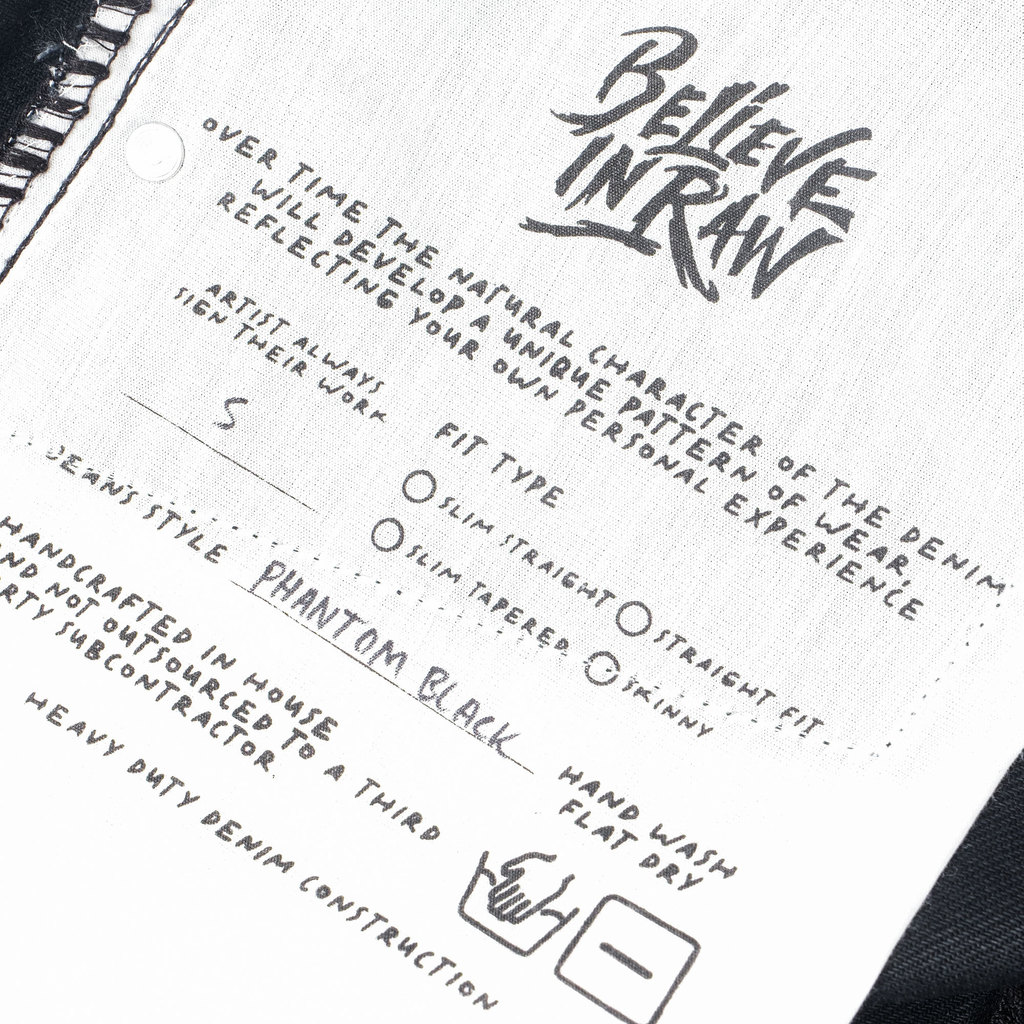 BELIEVE
IN RAW
OVER TIME THE NATURAL CHARACTER OF THE DENIM
WILL DEVELOP A UNIQUE PATTERN OF WEAR,
REFLECTING YOUR OWN PERSONAL EXPERIENCE
ARTIST ALWAYS
SIGN THEIR WORK
S
FIT TYPE
SLIM STRAIGHT
STRAIGHT FIT
SLIM TAPERED
SKINNY
JEANS STYLE PHANTOM BLACK
HANDCRAFTED IN HOUSE
AND NOT OUTSOURCED TO A THIRD
PARTY SUBCONTRACTOR
HEAVY DUTY DENIM CONSTRUCTION
HAND WASH
FLAT DRY